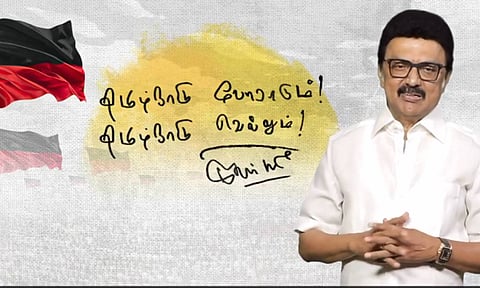 தமிழ்நாடு போராடும்!
தமிழ்நாடு வெல்லும்!